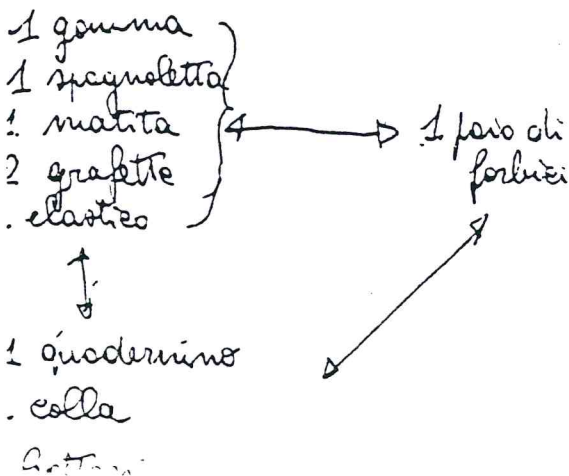 1 gomma
1 spagnoletta
1 matita
2 grafette
. elastico
1 paio di
forbici
1 quadernino
. colla